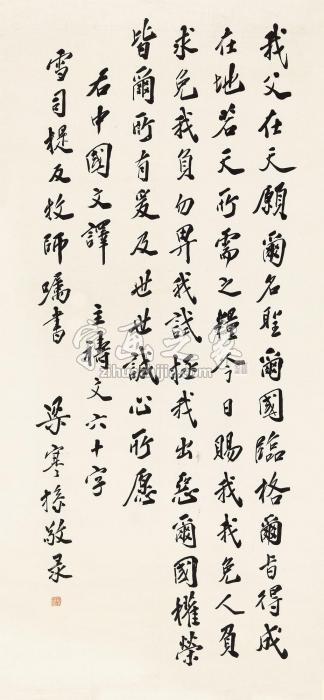 我父在天願爾名聖爾國臨格爾旨得成
在地若天所需之糧今日賜我我免人負
求免我負勿畀我試拯我出惡爾國權榮
皆爾所有爰及世世誠心所愿
右中國文譯 主禱文六十字
雪司提反牧師囑書 梁寒操敬录
字画之家